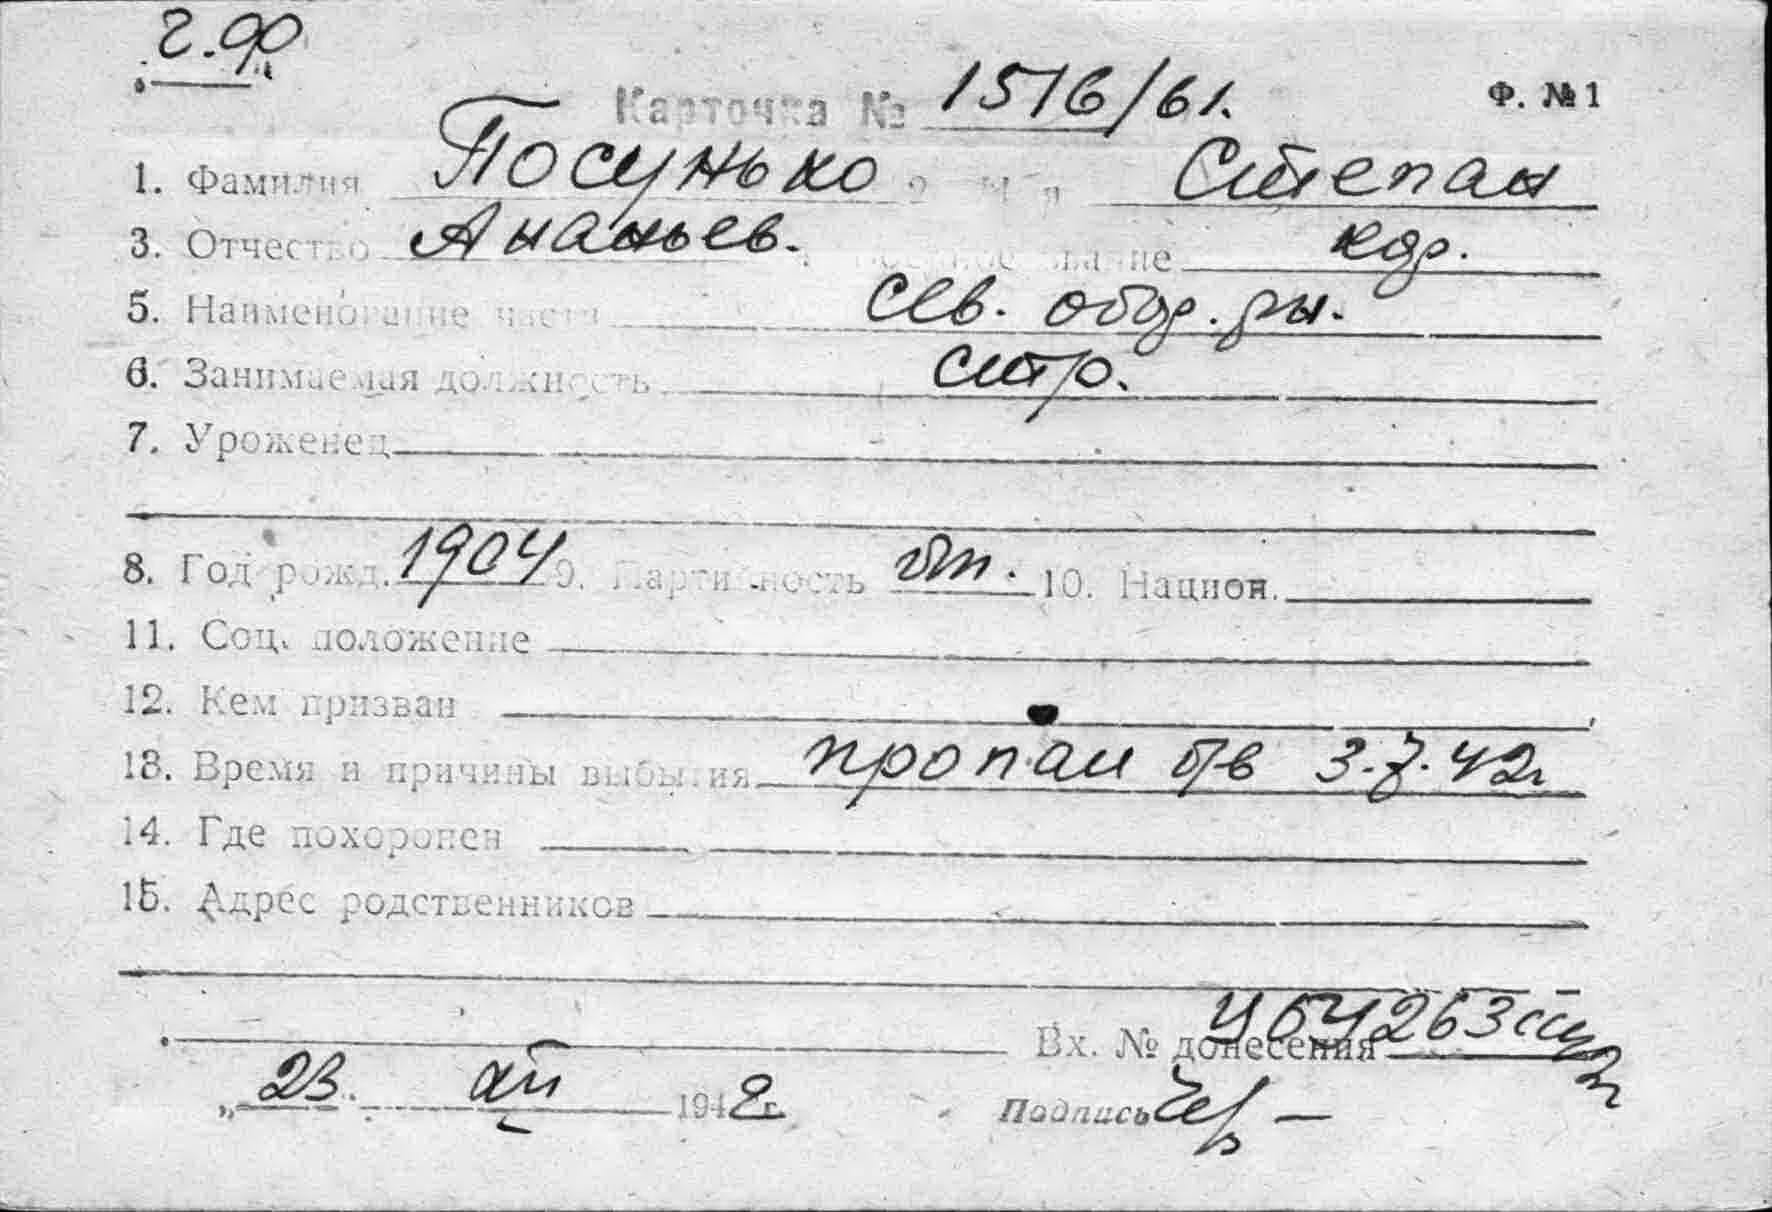 г. ф
Карточка № 1516/61. Ф. № 1
1. Фамилия Посунько 2. Имя Степан
3. Отчество Ананьев. 4. Военное звание кдр.
5. Наименование части сев. обор. р-ы.
6. Занимаемая должность стр.
7. Уроженец
8. Год рожд. 1904 9. Партийность б/п. 10. Национ.
11. Соц. положение
12. Кем призван
13. Время и причины выбытия пропал б/в 3.7.42г
14. Где похоронен
15. Адрес родственников
Вх. № донесения 263
„ 23. 194 г.
Подпись